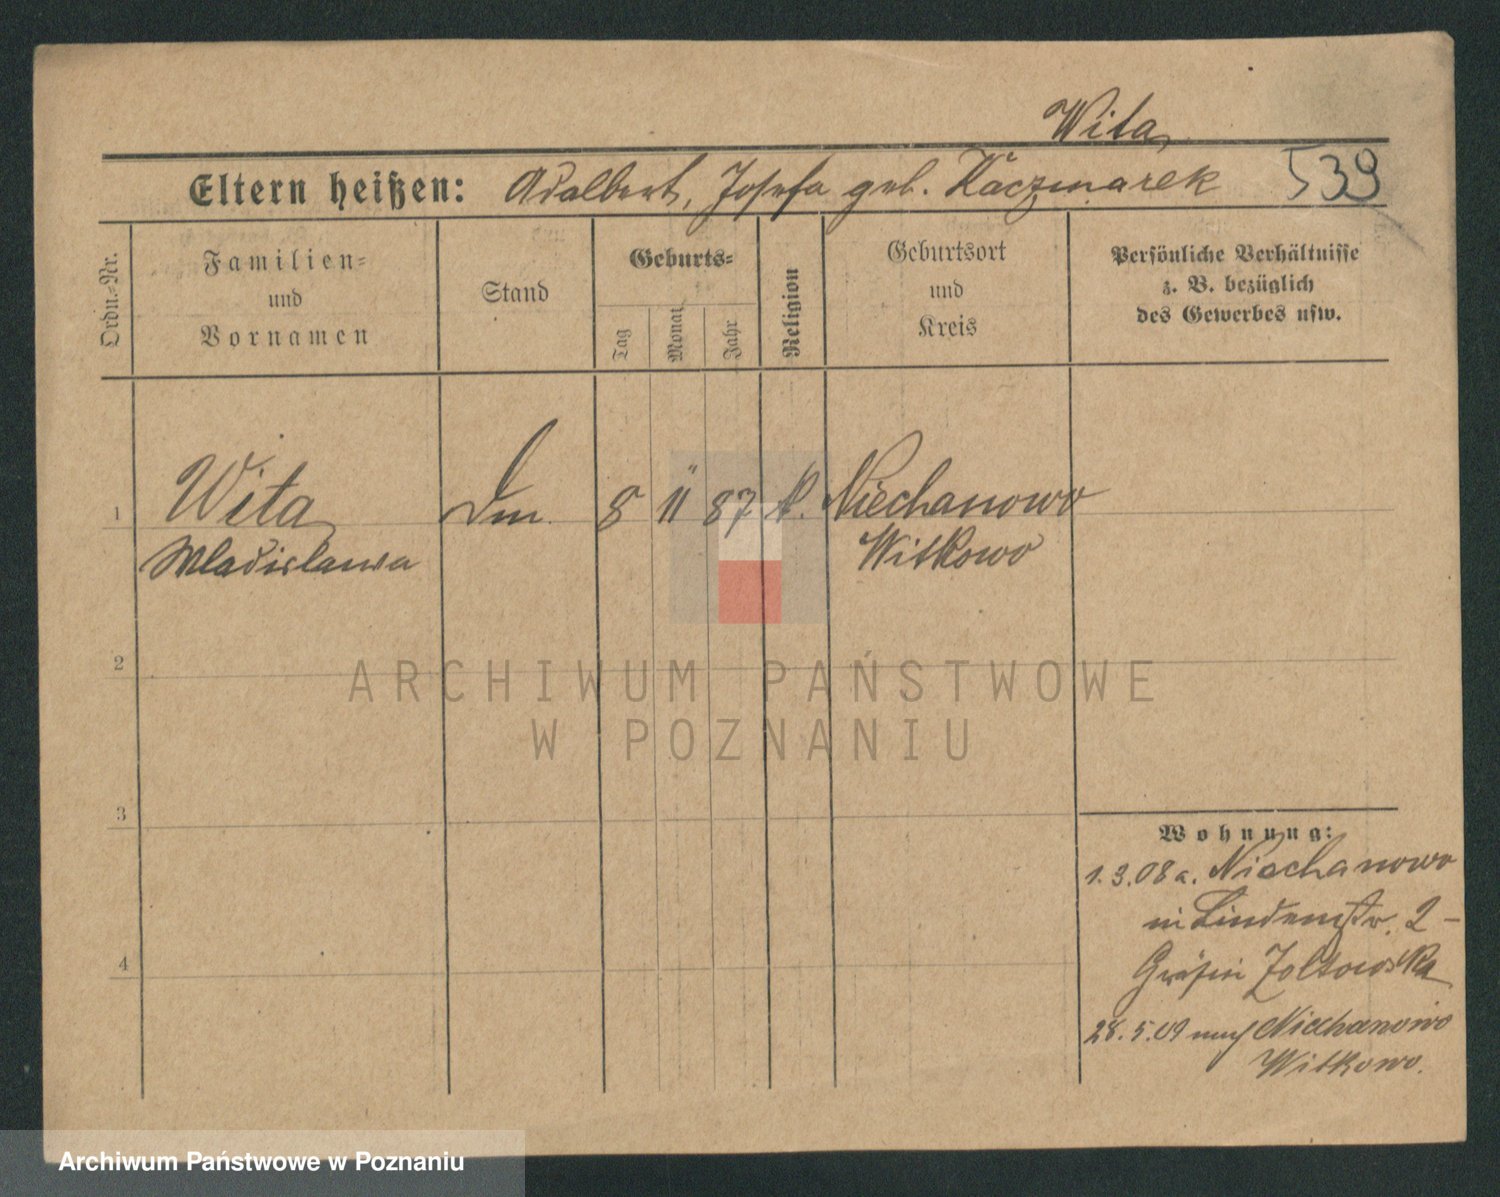 Wita
Eltern heißen: Adalbert, Josefa geb. Kaczmarek 539
Ordn.-Nr.
Familien-
und
Vornamen
Stand
Geburts-
Tag
Monat
Jahr
Religion
Geburtsort
und
Kreis
Persönliche Verhältnisse
z. B. bezüglich
des Gewerbes usw.
1 Wita Dm. 8 11 87 k. Niechanowo
Wladislawa Witkowo
2
3
4
Wohnung:
1.3.08 a. Niechanowo
in Lindenstr. 2 -
Gräfin Zoltowska
28.5.09 nach Niechanowo
Witkowo.
ARCHIWUM PAŃSTWOWE
W POZNANIU
Archiwum Państwowe w Poznaniu